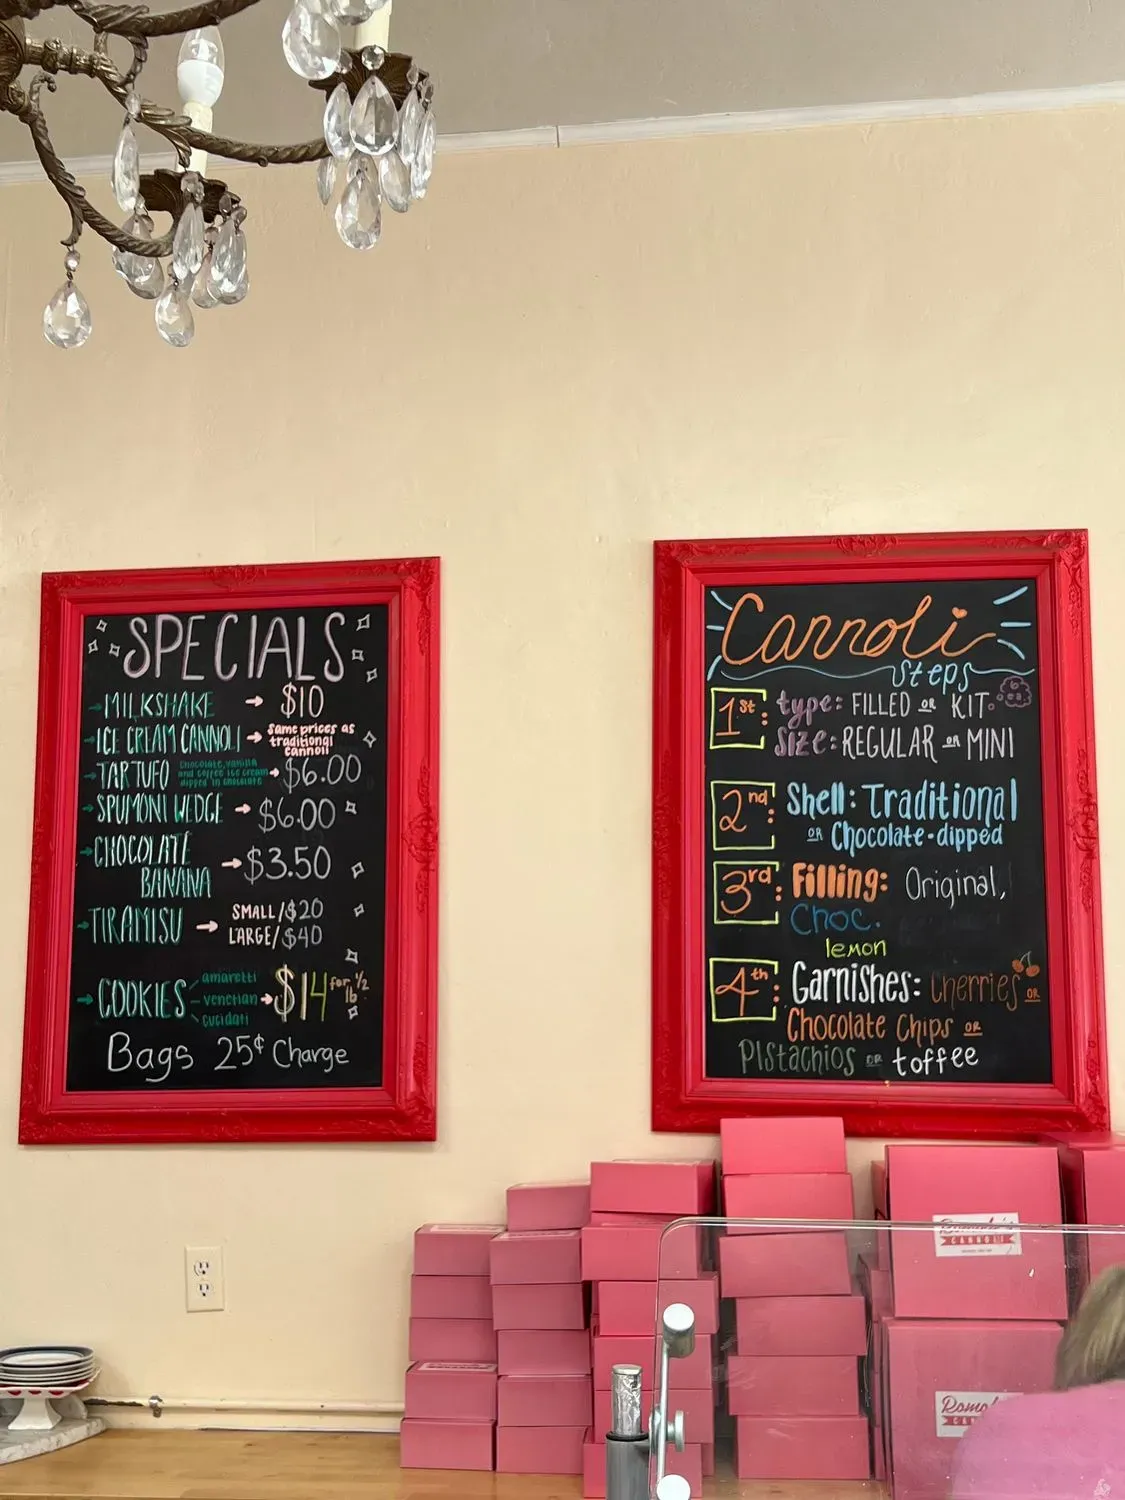 SPECIALS
MILKSHAKE → $10
ICE CREAM CANNOLI → same prices as traditional cannoli
TARTUFO chocolate, vanilla and coffee ice cream dipped in chocolate → $6.00
SPUMONI WEDGE → $6.00
CHOCOLATE
BANANA → $3.50
TIRAMISU → SMALL/$20
LARGE/$40
COOKIES amaretti
venetian
cucidati
→ $14 for 1/2 lb.
Bags 25¢ Charge
Cannoli
Steps
1st: type: FILLED OR KIT
size: REGULAR OR MINI
2nd: Shell: Traditional
OR Chocolate-dipped
3rd: Filling: Original,
Choc.
lemon
4th: Garnishes: Cherries OR
Chocolate Chips OR
Pistachios OR toffee
Romolo's
CANNOLI